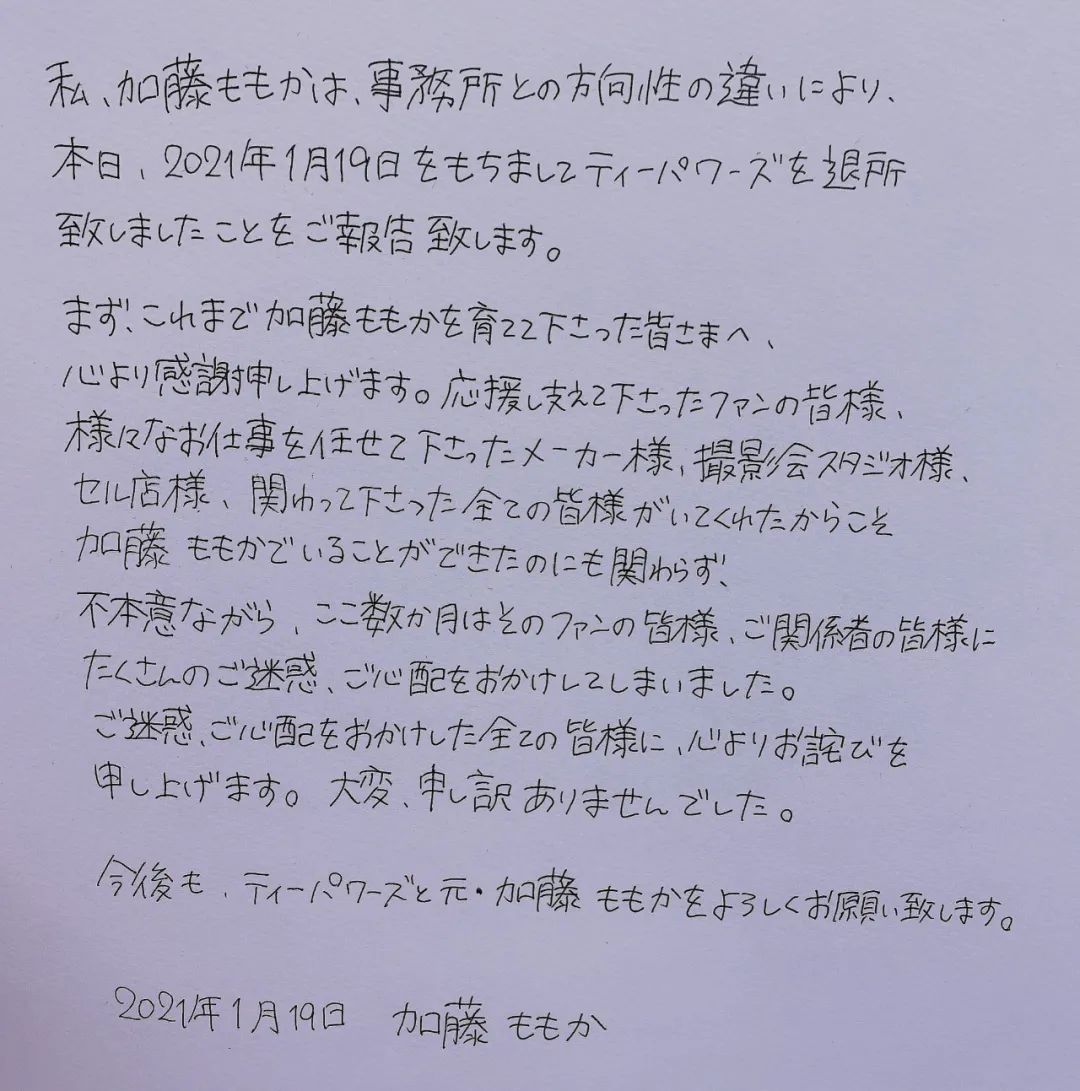 私、加藤ももかは、事務所との方向性の違いにより、
本日、2021年1月19日をもちましてティーパワーズを退所
致しましたことをご報告致します。
まず、これまで加藤ももかを育てて下さった皆さまへ、
心より感謝申し上げます。応援し支えて下さったファンの皆様、
様々なお仕事を任せて下さったメーカー様、撮影会スタジオ様、
セル店様、関わって下さった全ての皆様がいてくれたからこそ
加藤ももかでいることができたのにも関わらず、
不本意ながら、ここ数か月はそのファンの皆様、ご関係者の皆様に
たくさんのご迷惑、ご心配をおかけしてしまいました。
ご迷惑、ご心配をおかけした全ての皆様に、心よりお詫びを
申し上げます。大変、申し訳ありませんでした。
今後も、ティーパワーズと元・加藤ももかをよろしくお願い致します。
2021年1月19日 加藤ももか